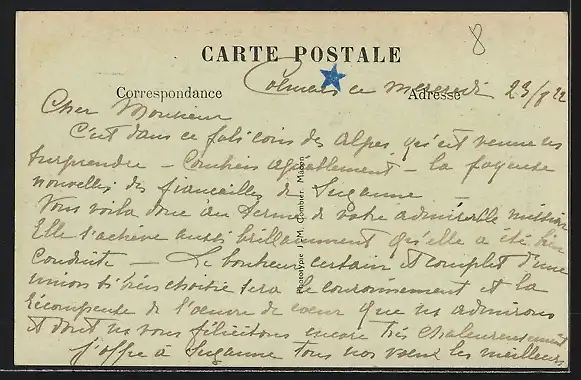 8
CARTE POSTALE
Correspondance
Adresse
Colmars ce mercredi 23/8 22
Cher Monsieur
C'est dans ce joli coin des Alpes, qu'est venue ns
surprendre – Combien agréablement – la joyeuse
nouvelle des fiançailles de Suzanne –
Vous voilà donc au terme de votre admirable mission
Elle s'achève aussi brillamment qu'elle a été bien
conduite – Le bonheur certain et complet d'une
union si bien choisie sera le couronnement et la
récompense de l'œuvre de cœur que ns admirons
et dont ns vous félicitons encore très chaleureusement
J'offre à Suzanne tous nos vœux les meilleurs
Phototypie J. Combier Macon